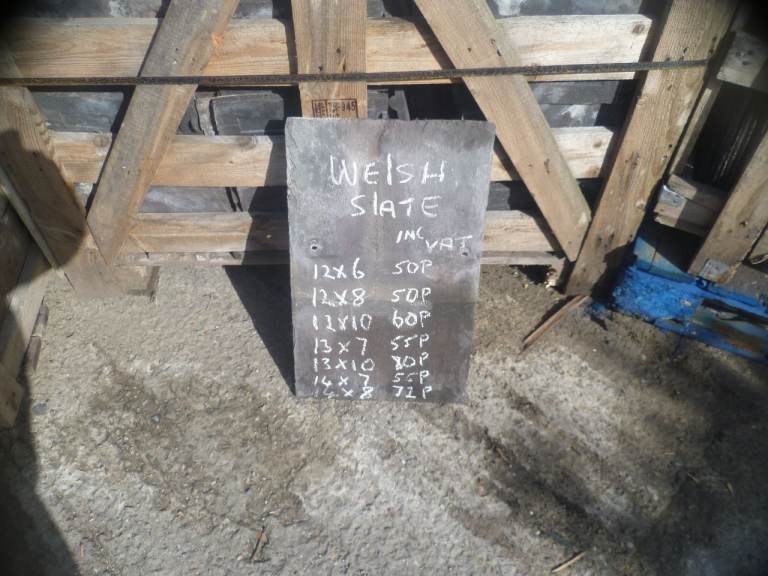 WElSH
SlATE
INC VAT
12x6 50P
12x8 50P
12x10 60P
13x7 55P
13x10 80P
14x7 55P
14x8 72P